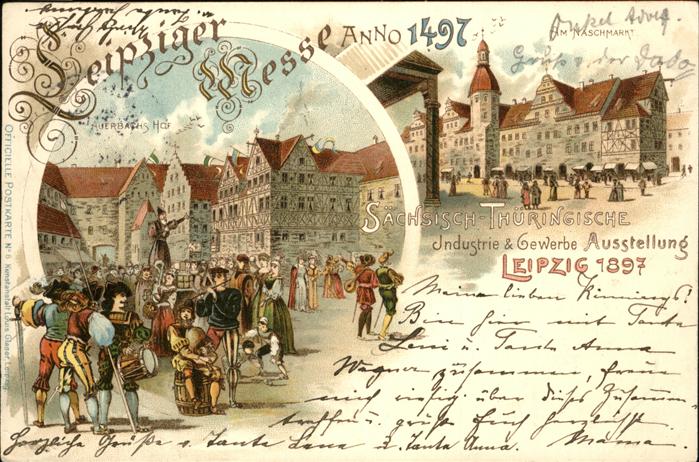 Leipziger Messe ANNO 1497
AM NASCHMARKT
Onkel Adolf.
Gruß v. der
AUERBACHS HOF
SÄCHSISCH-THÜRINGISCHE
Industrie & Gewerbe Ausstellung
LEIPZIG 1897
OFFICIELLE POSTKARTE No 6 Kunstanstalt Louis Glaser, Leipzig
Meine lieben
Bin hier mit Tante
Leni u. Tante Anna
Wagner zusammen, freue
mich riesig über dieses Zusammen-
treffen u. grüße Euch herzlichst
Mama.
Herzliche Grüße v. Tante Lena u. Tante Anna.